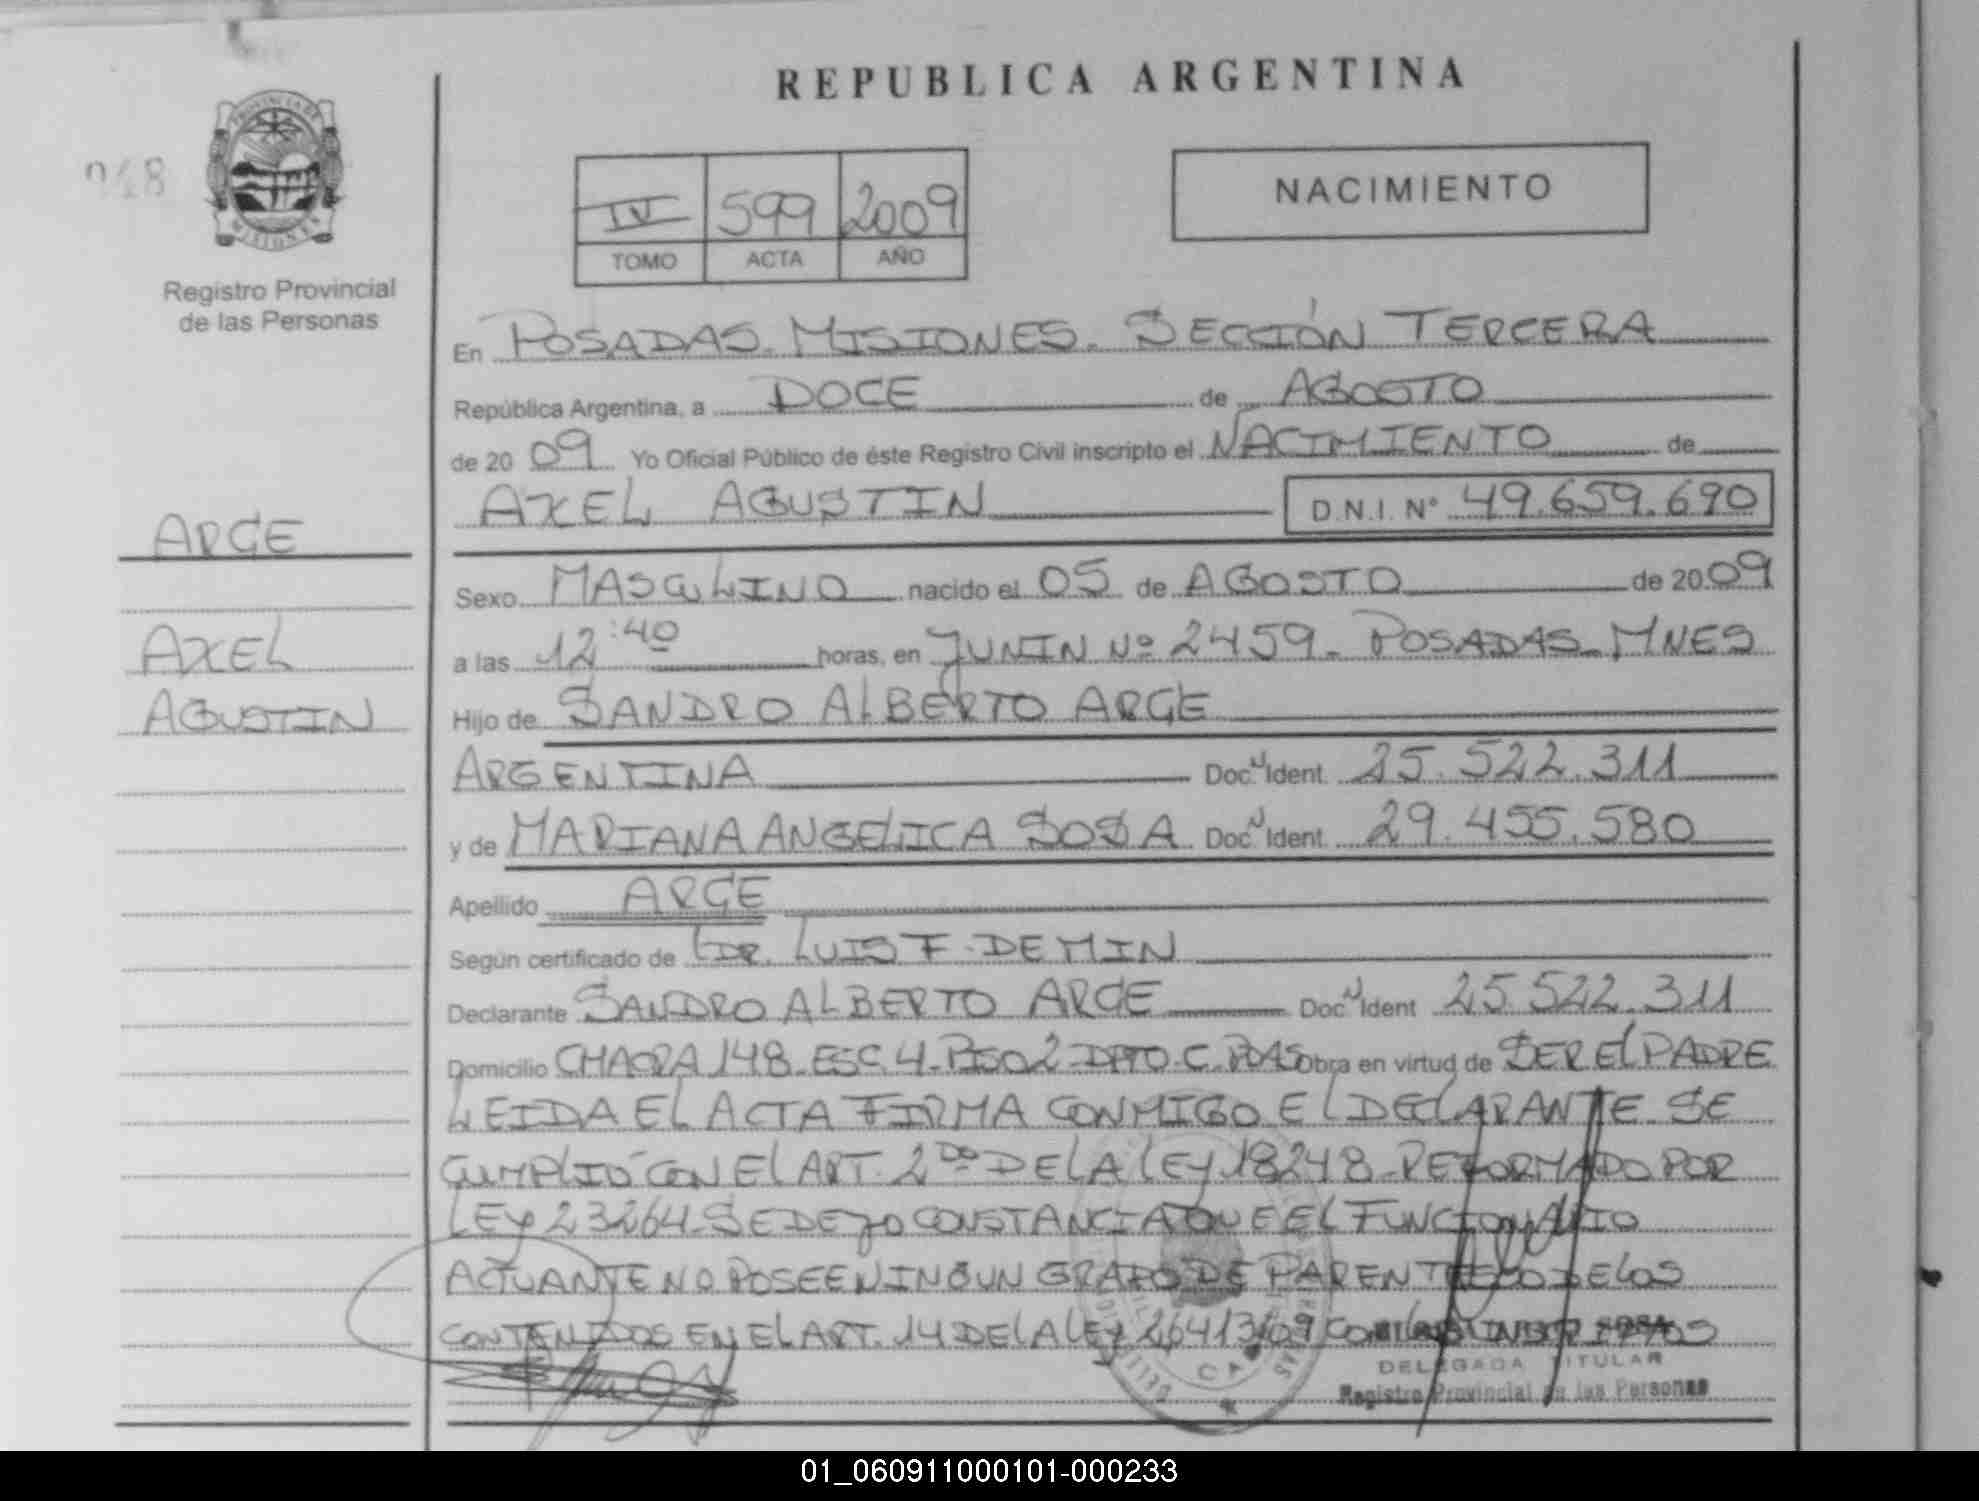 REPUBLICA ARGENTINA
PROVINCIA DE
MISIONES
948
Registro Provincial
de las Personas
IV 599 2009
TOMO ACTA AÑO
NACIMIENTO
En POSADAS. MISIONES. SECCIÓN TERCERA
República Argentina, a DOCE de AGOSTO
de 2009 Yo Oficial Público de éste Registro Civil inscripto el NACIMIENTO de
AXEL AGUSTIN D.N.I. Nº 49.659.690
ARCE
AXEL
AGUSTIN
Sexo MASCULINO nacido el 05 de AGOSTO de 2009
a las 12:40 horas, en JUNIN Nº 2459 - POSADAS - MNES
Hijo de SANDRO ALBERTO ARCE
ARGENTINA Doc. Ident. 25.522.311
y de MARIANA ANGELICA SOSA Doc. Ident. 29.455.580
Apellido ARCE
Según certificado de DR. LUIS F. DEMIN
Declarante SANDRO ALBERTO ARCE Doc. Ident 25.522.311
Domicilio CHACRA 148 - ESC. 4 - PISO 2 - DPTO. C. PDAS obra en virtud de SER EL PADRE
LEIDA EL ACTA FIRMA CONMIGO EL DECLARANTE SE
CUMPLIÓ CON EL ART. 2DO DE LA LEY 18248 - REFORMADO POR
LEY 23264 - SE DEJO CONSTANCIA QUE EL FUNCIONARIO
ACTUANTE NO POSEE NINGUN GRADO DE PARENTESCO DE LOS
CONTENIDOS EN EL ART. 14 DE LA LEY 26413/09 CON LOS INSCRIPTOS
DELEGADA TITULAR
Registro Provincial de las Personas
01_060911000101-000233